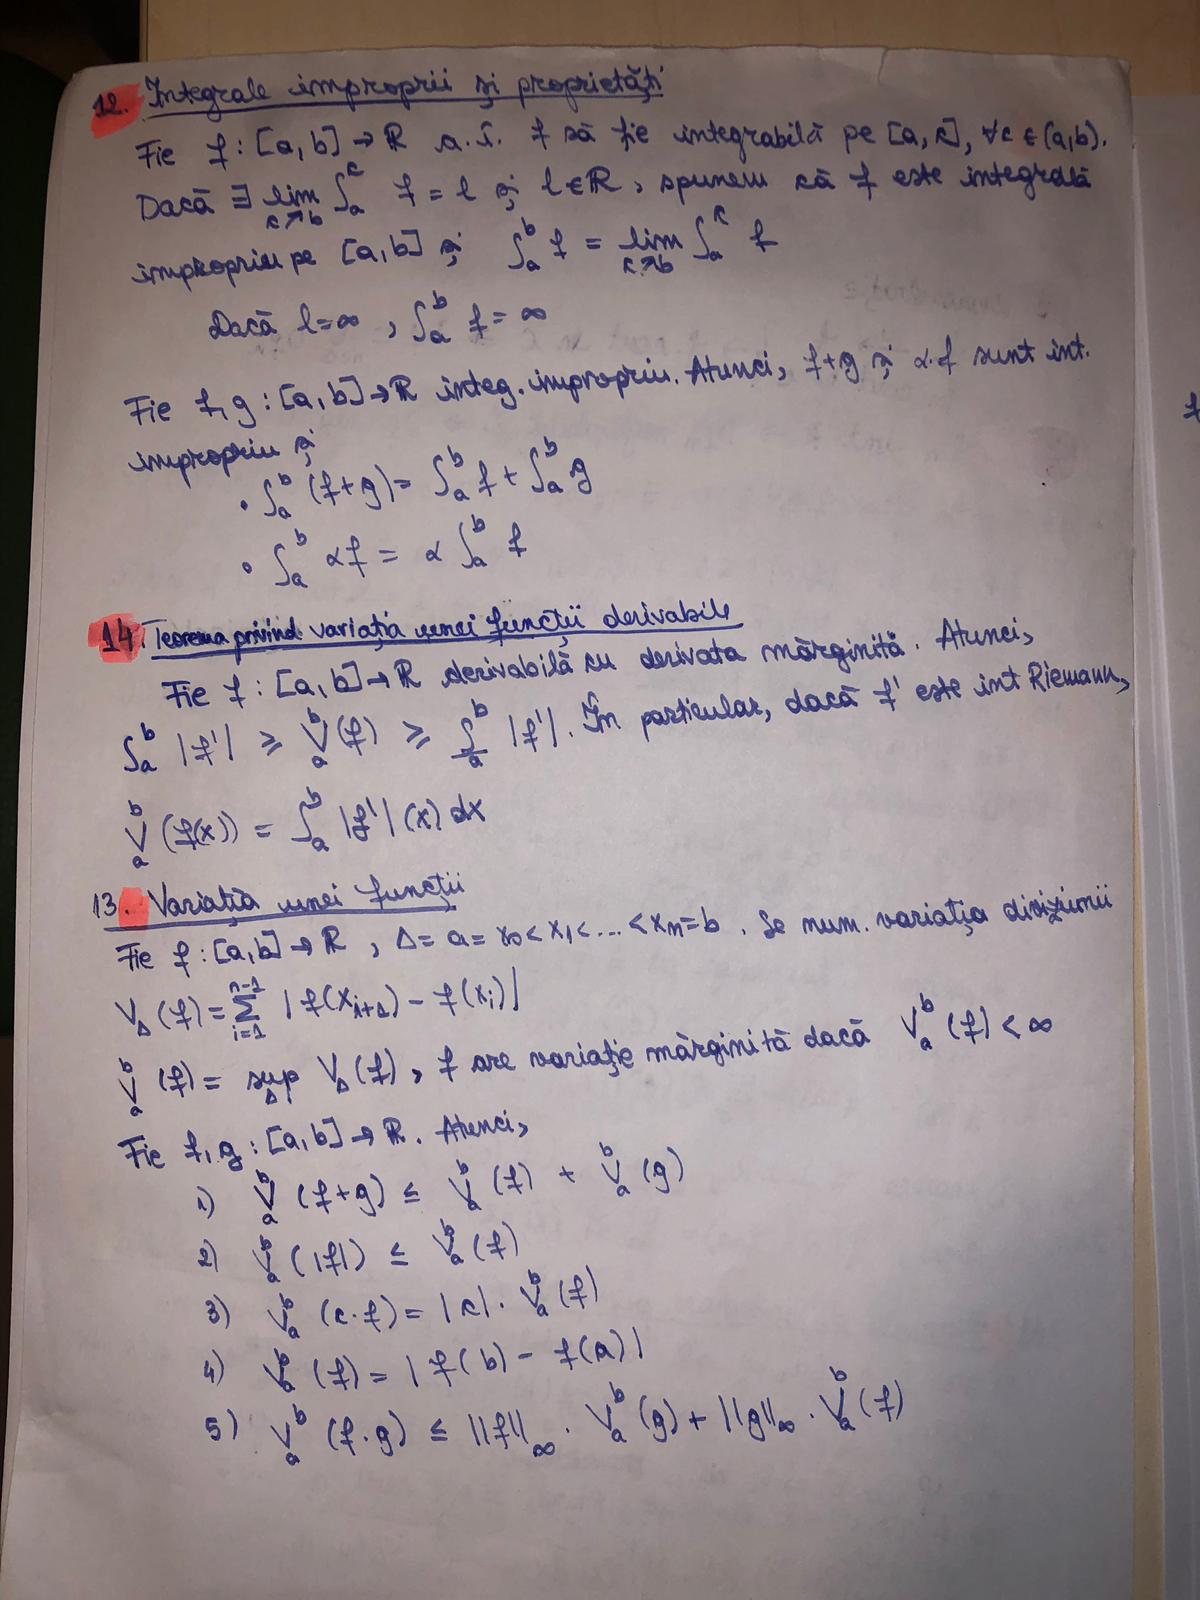 12. Integrale improprii și proprietăți
Fie f : [a,b] → ℝ a.î. f să fie integrabilă pe [a,c], ∀c ∈ (a,b).
Dacă ∃ lim_{c↗b} ∫_a^c f = l și l ∈ ℝ, spunem că f este integrală
impropriu pe [a,b] și ∫_a^b f = lim_{c↗b} ∫_a^c f
Dacă l = ∞, ∫_a^b f = ∞
Fie f, g : [a,b] → ℝ integ. impropriu. Atunci, f+g și α·f sunt int.
impropriu și
• ∫_a^b (f+g) = ∫_a^b f + ∫_a^b g
• ∫_a^b αf = α ∫_a^b f
14. Teorema privind variația unei funcții derivabile
Fie f : [a,b] → ℝ derivabilă cu derivata mărginită. Atunci,
∫_a^b |f'| ≥ V_a^b (f) ≥ ∫_a^b |f'|. În particular, dacă f' este int Riemann,
V_a^b (f(x)) = ∫_a^b |f'| (x) dx
13. Variația unei funcții
Fie f : [a,b] → ℝ, Δ = a = x_0 < x_1 < ... < x_n = b. Se num. variația diviziunii
V_Δ (f) = Σ_{i=1}^{n-1} | f(x_{i+1}) - f(x_i) |
V_a^b (f) = sup_Δ V_Δ (f), f are variație mărginită dacă V_a^b (f) < ∞
Fie f, g : [a,b] → ℝ. Atunci,
1) V_a^b (f+g) ≤ V_a^b (f) + V_a^b (g)
2) V_a^b (|f|) ≤ V_a^b (f)
3) V_a^b (c·f) = |c| · V_a^b (f)
4) V_a^b (f) = | f(b) - f(a) |
5) V_a^b (f·g) ≤ ||f||_∞ · V_a^b (g) + ||g||_∞ · V_a^b (f)